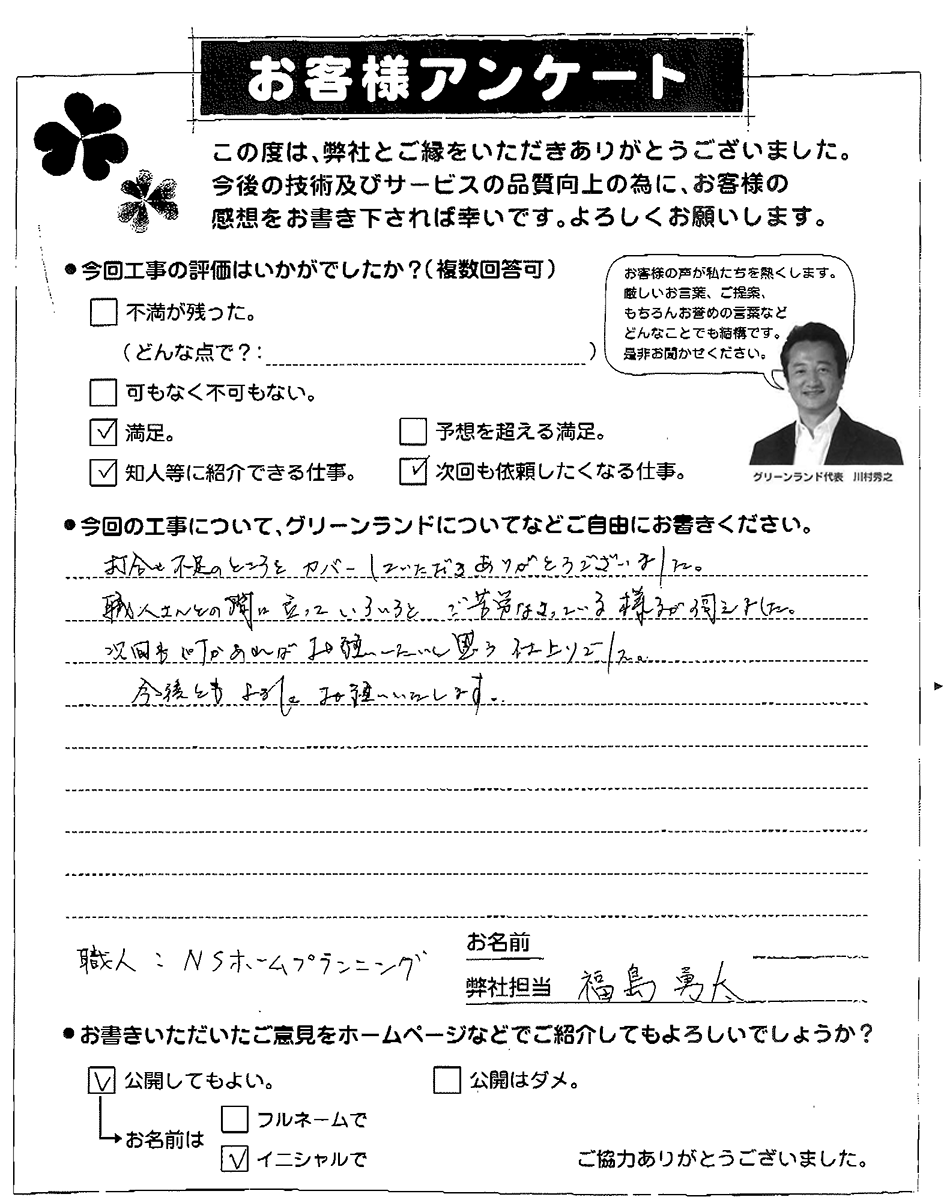 お客様アンケート
この度は、弊社とご縁をいただきありがとうございました。
今後の技術及びサービスの品質向上の為に、お客様の
感想をお書き下されば幸いです。よろしくお願いします。
●今回工事の評価はいかがでしたか？（複数回答可）
不満が残った。
（どんな点で？：）
可もなく不可もない。
満足。
予想を超える満足。
知人等に紹介できる仕事。
次回も依頼したくなる仕事。
お客様の声が私たちを熱くします。
厳しいお言葉、ご提案、
もちろんお誉めの言葉など
どんなことでも結構です。
是非お聞かせください。
グリーンランド代表 川村秀之
●今回の工事について、グリーンランドについてなどご自由にお書きください。
打合せ不足のところをカバーしていただきありがとうございました。
職人さんとの間に立っていろいろとご苦労なさっている様子が伺えました。
次回も何かあればお願いしたいと思う仕上りでした。
今後ともよろしくお願いいたします。
職人：NSホームプランニング
お名前
弊社担当 福島勇太
●お書きいただいたご意見をホームページなどでご紹介してもよろしいでしょうか？
公開してもよい。
公開はダメ。
お名前は
フルネームで
イニシャルで
ご協力ありがとうございました。